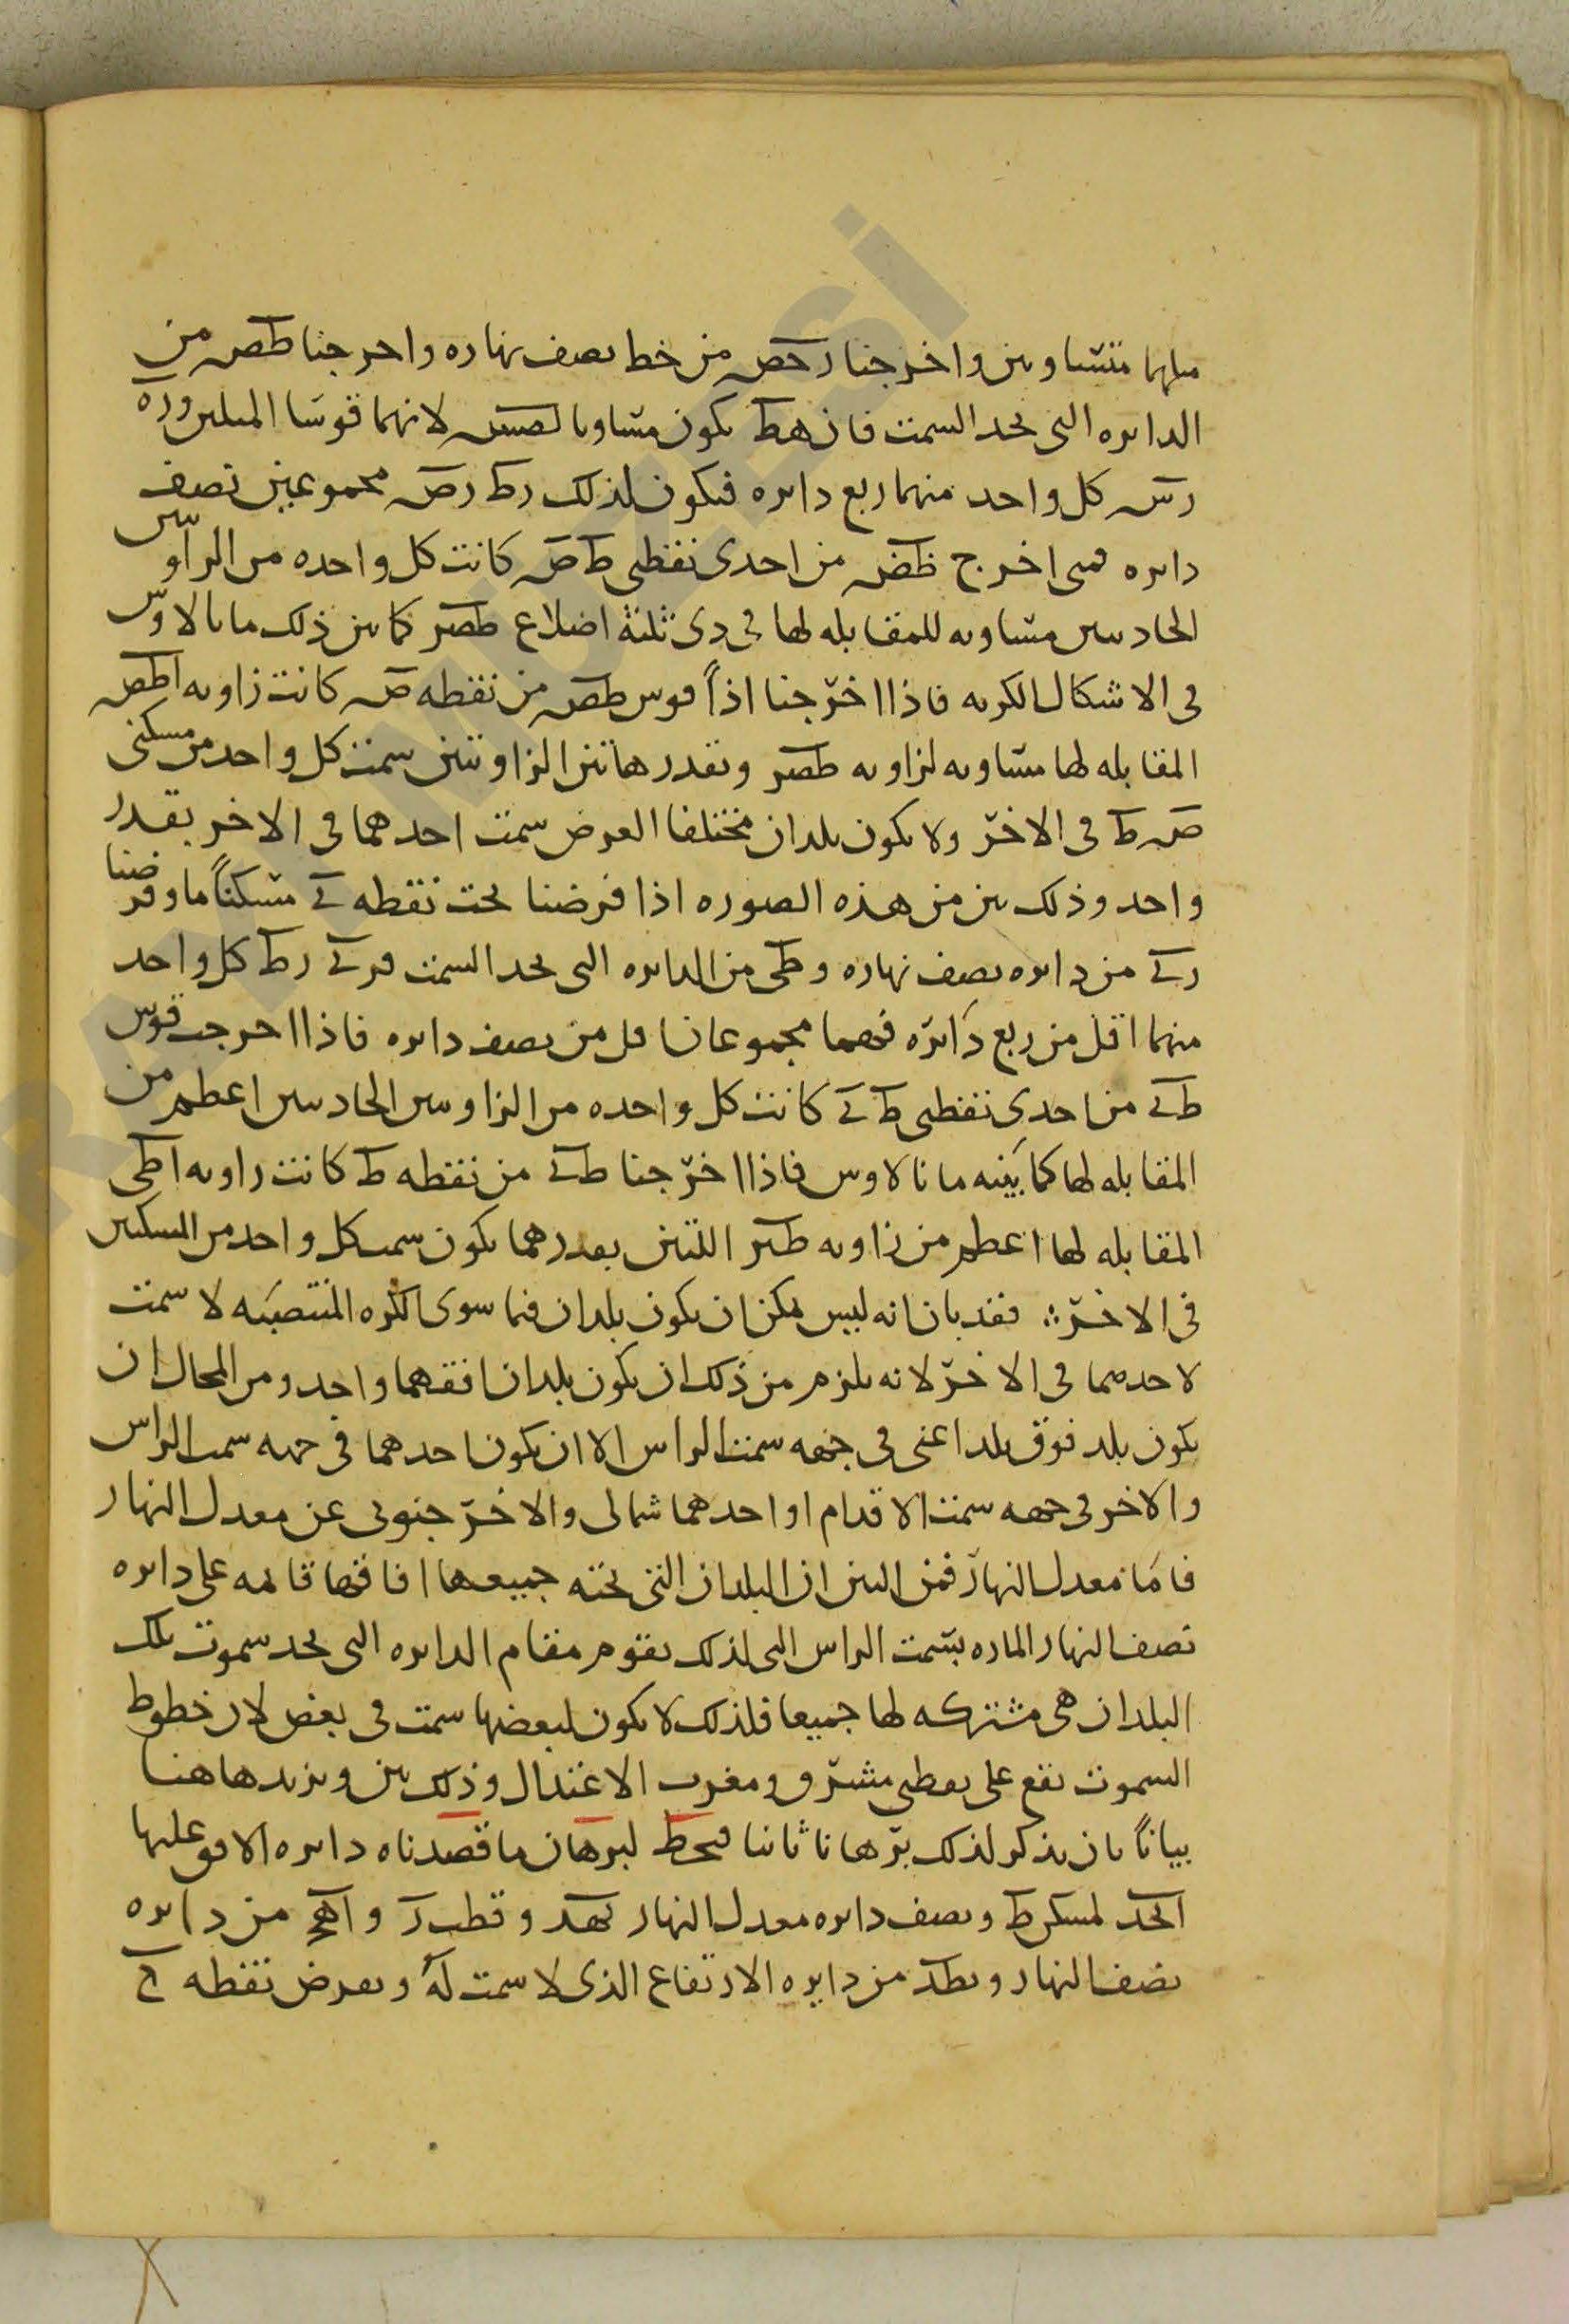 ميلهما متساويين واخرجنا رحص من خط نصف نهاره واخرجنا طص من
الدائره التى تحد السمت فان هط يكون مساويا لصس لانهما قوسا الميلين وره
رس كل واحد منهما ربع دائره فيكون لذلك رط رص مجموعين نصف
دائره فمتى اخرج طص من احدى نقطتى ط ص كانت كل واحده من الزاويتين
الحادثتين مساويه للمقابله لها فى ذى ثلثة اضلاع طصر كما بين ذلك مانالاوس
فى الاشكال الكريه فاذا اخرجنا اذاً قوس طص من نقطه ص كانت زاويه اطص
المقابله لها مساويه لزاويه طصر وبقدر هاتين الزاويتين سمت كل واحد من مسكنى
ص ط فى الاخر ولا يكون بلدان مختلفا العرض سمت احدهما فى الاخر بقدر
واحد وذلك بين من هذه الصوره اذا فرضنا تحت نقطه ى مسكناً ما وفرضنا
رى من دائره نصف نهاره وطى من الدائره التى تحد السمت فرى رط كل واحد
منهما اقل من ربع دائره فهما مجموعان اقل من نصف دائره فاذا اخرجت قوس
طى من احدى نقطتى ط ى كانت كل واحده من الزاويتين الحادثتين اعظم من
المقابله لها كما بينه مانالاوس فاذا اخرجنا طى من نقطه ط كانت زاويه اطى
المقابله لها اعظم من زاويه طير اللتين بقدرهما يكون سمت كل واحد من المسكنين
فى الاخر ∴ فقد بان انه ليس يمكن ان يكون بلدان فيما سوى الكره المنتصبه لا سمت
لاحدهما فى الاخر لانه يلزم من ذلك ان يكون بلدان افقهما واحد ومن المحال ان
يكون بلد فوق بلد اعنى فى جهه سمت الراس الا ان يكون احدهما فى جهه سمت الراس
والاخر فى جهه سمت الاقدام او احدهما شمالى والاخر جنوبى عن معدل النهار
فاما معدل النهار فمن البين ان البلدان التى تحته جميعها افاقها قائمه على دائره
نصف النهار الماره بسمت الراس التى لذلك تقوم مقام الدائره التى تحد سموت تلك
البلدان هى مشتركه لها جميعا فلذلك لا يكون لبعضها سمت فى بعض لان خطوط
السموت تقع على نقطتى مشرق ومغرب الاعتدال وذلك بين ونزيد هاهنا
بياناً بان نذكر لذلك برهانا ثانيا فنخط لبرهان ما قصدناه دائره الافق عليها
ابجد لمسكن ط ونصف دائره معدل النهار بهد وقطب ر واهج من دائره
نصف النهار وبطد من دائره الارتفاع الذى لا سمت له ونفرض نقطه ح